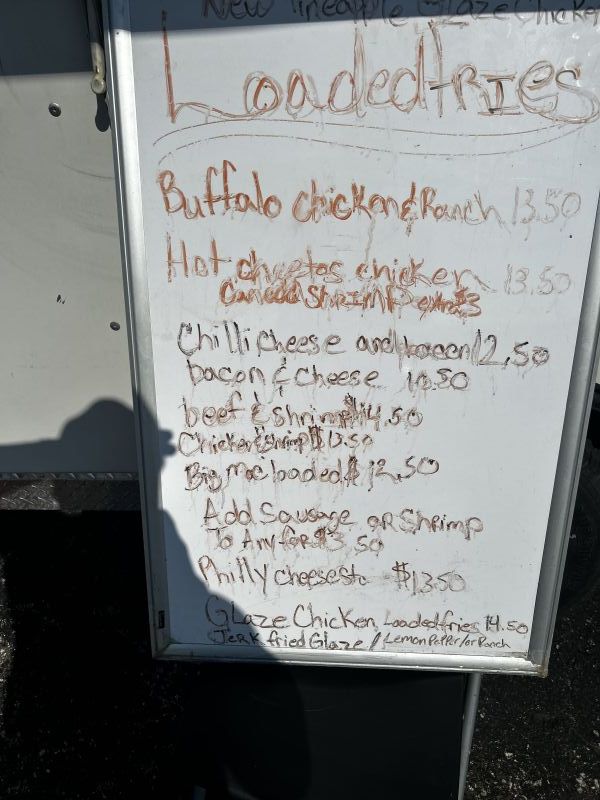 New Pineapple Glaze Chicken
Loaded fries
Buffalo chicken & Ranch 13.50
Hot cheetos chicken 13.50
Can add Shrimp extra $3
Chilli cheese and bacon 12.50
bacon & cheese 10.50
beef & shrimp $14.50
Chicken & shrimp $13.50
Big mac loaded $12.50
Add Sausage or Shrimp
To Any for $3.50
Philly cheeseste $13.50
Glaze Chicken Loaded fries 14.50
Jerk fried Glaze / Lemon Pepper / or Ranch